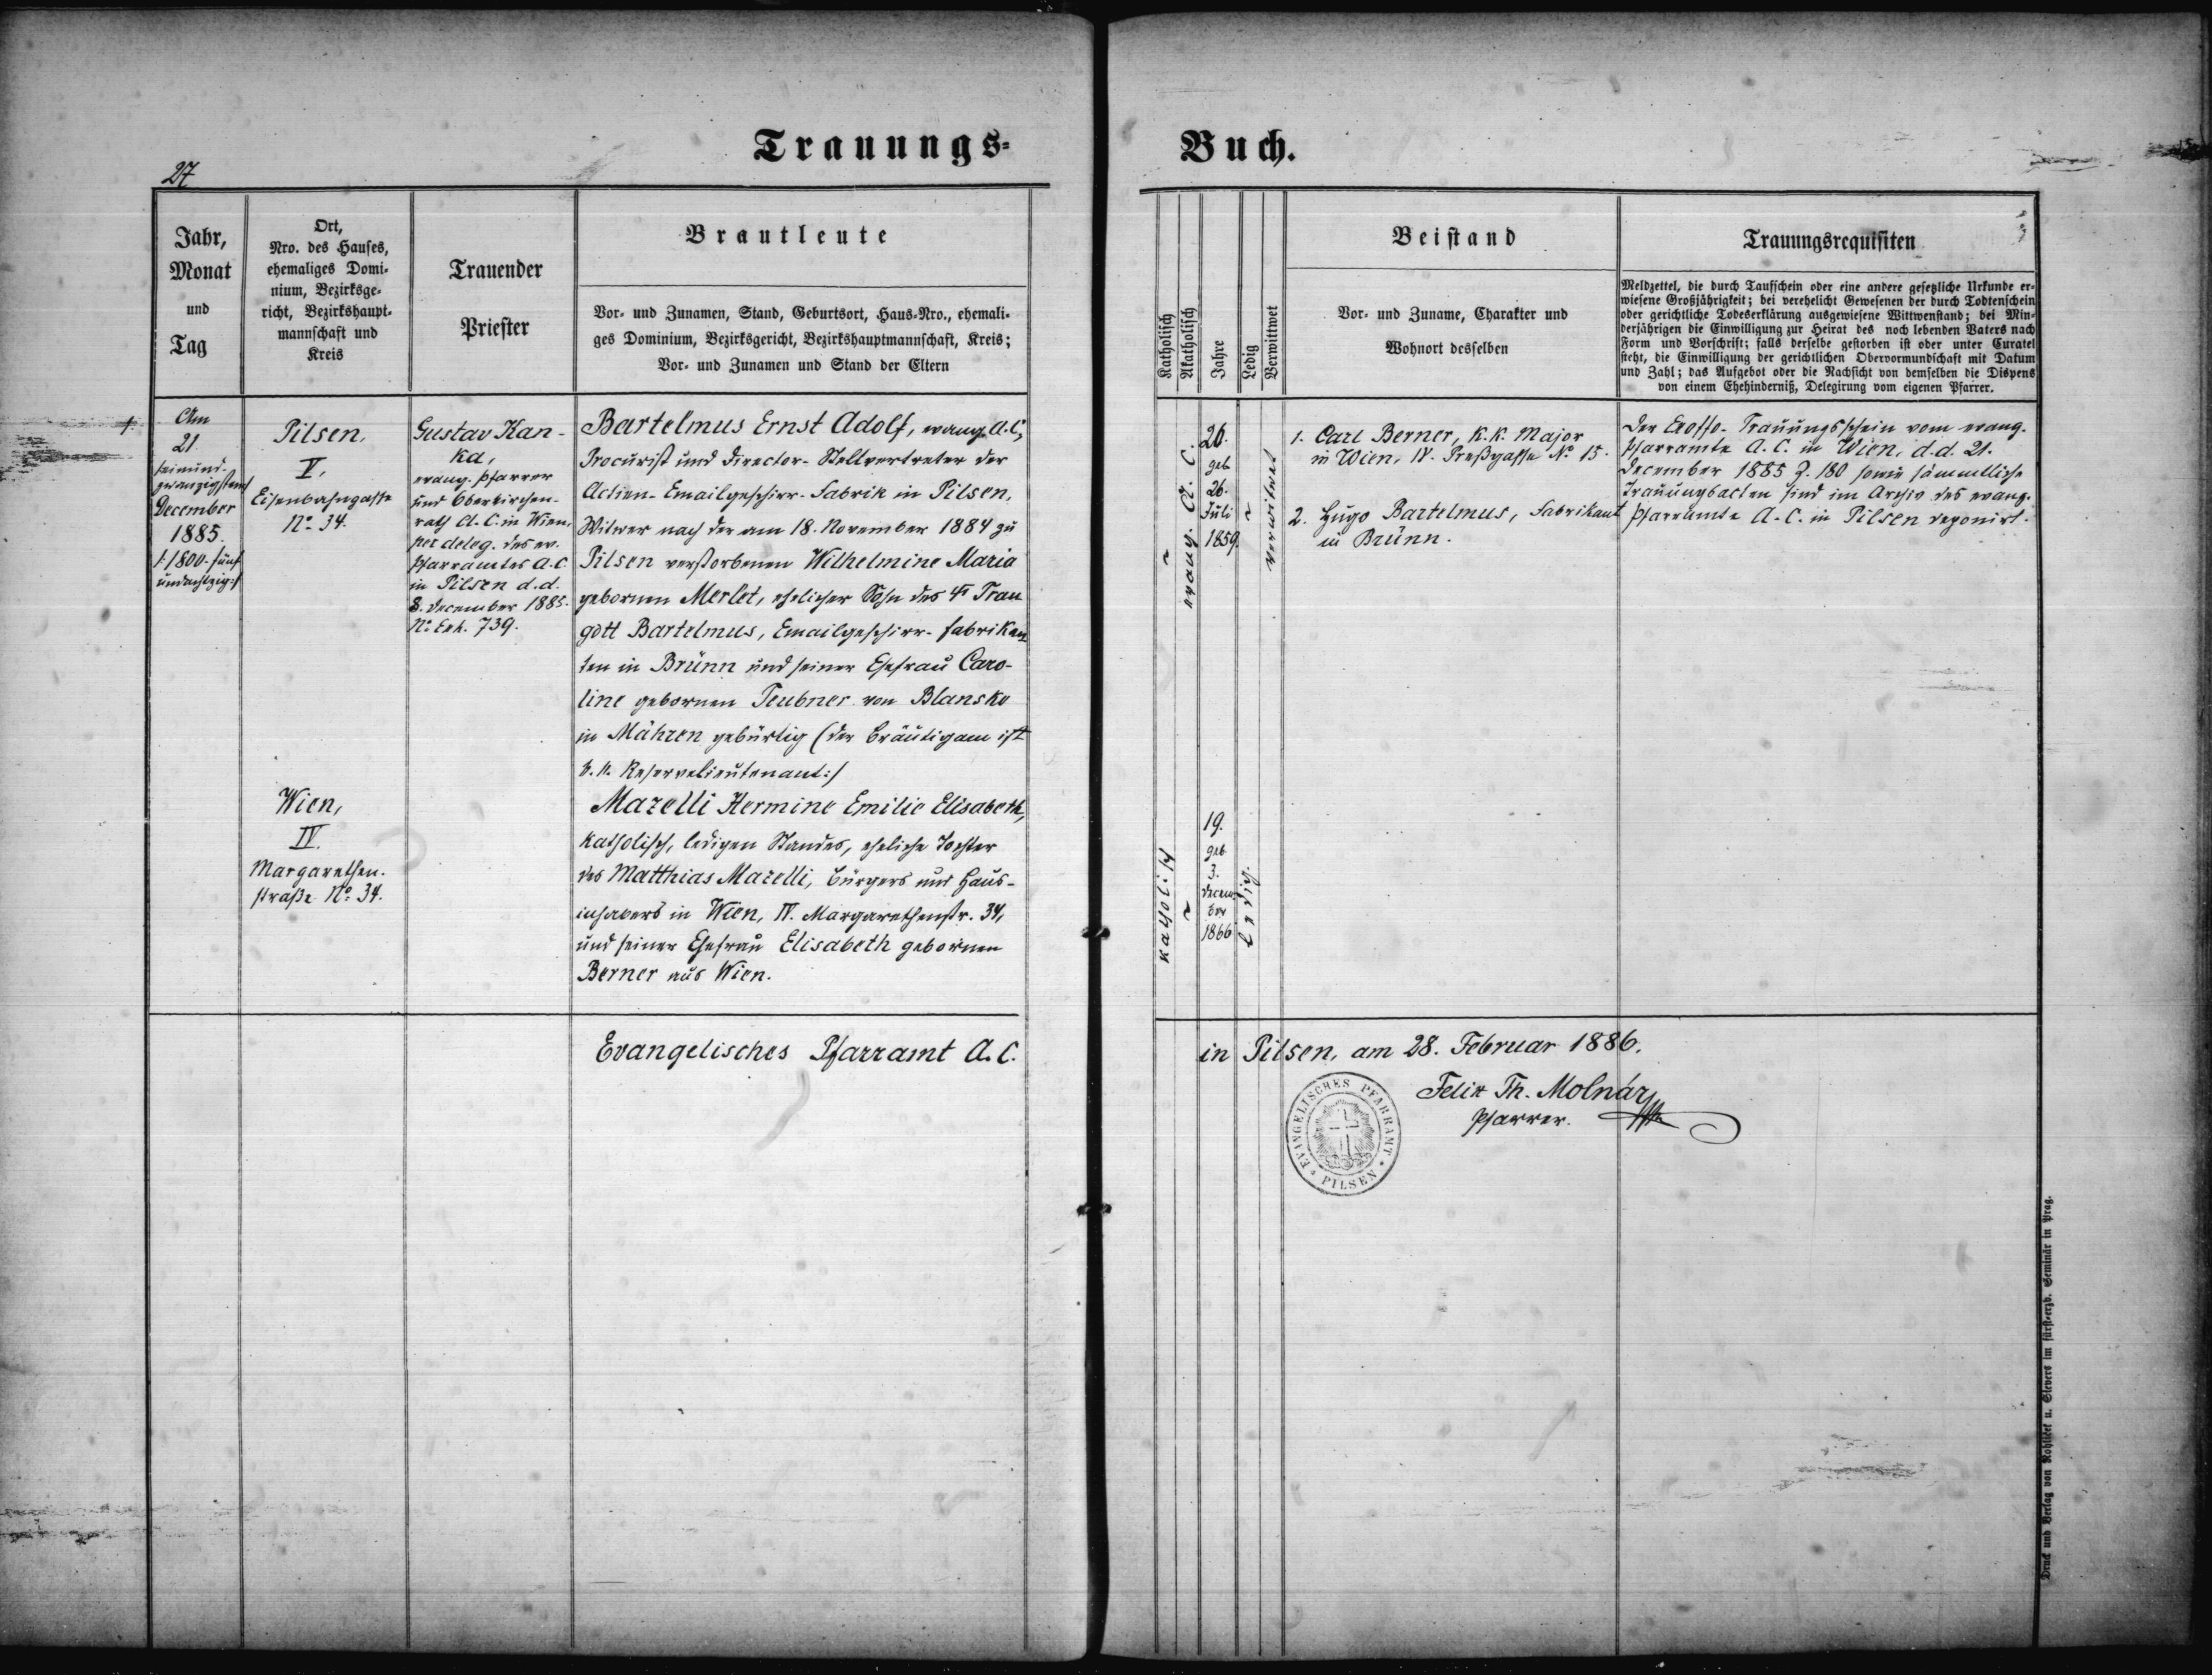 Trauungs-
Buch.
27
Jahr,
Monat
und
Tag
Ort,
Nro. des Hauses,
ehemaliges Domi-
nium, Bezirksge-
richt, Bezirkshaupt-
mannschaft und
Kreis
Trauender
Priester
Brautleute
Vor- und Zunamen, Stand, Geburtsort, Haus-Nro., ehemali-
ges Dominium, Bezirksgericht, Bezirkshauptmannschaft, Kreis;
Vor- und Zunamen und Stand der Eltern
Katholisch
Akatholisch
Jahre
Ledig
Verwittwet
Beistand
Vor- und Zuname, Charakter und
Wohnort desselben
Trauungsrequisiten
Meldzettel, die durch Taufschein oder eine andere gesetzliche Urkunde er-
wiesene Großjährigkeit; bei verehelicht Gewesenen der durch Todtenschein
oder gerichtliche Todeserklärung ausgewiesene Wittwenstand; bei Min-
derjährigen die Einwilligung zur Heirat des noch lebenden Vaters nach
Form und Vorschrift; falls derselbe gestorben ist oder unter Curatel
steht, die Einwilligung der gerichtlichen Obervormundschaft mit Datum
und Zahl; das Aufgebot oder die Nachsicht von demselben die Dispens
von einem Ehehinderniß, Delegirung vom eigenen Pfarrer.
1.
Am
21
/:einund-
zwanzigsten/
December
1885.
/:1800-fünf
undachtzig:/
Pilsen,
V.
Eisenbahngasse
No. 34.
Gustav Kan-
ka,
evang. Pfarrer
und Oberkirchen-
rath A. C. in Wien,
per deleg. des ev.
Pfarramtes A. C.
in Pilsen d. d.
8. December 1885.
No. Exh. 739.
Bartelmus Ernst Adolf, evang. A. C.,
Procurist und Director-Stellvertreter der
Actien-Emailgeschirr-Fabrik in Pilsen,
Witwer nach der am 18. November 1884 zu
Pilsen verstorbenen Wilhelmine Maria
gebornen Merlet, ehelicher Sohn des Trau
gott Bartelmus, Emailgeschirr-Fabrikan
ten in Brünn und seiner Ehefrau Caro-
line gebornen Teubner von Blansko
in Mähren gebürtig (der Bräutigam ist
k. k. Reservelieutenant:/
evang. A. C.
26.
geb.
26.
Juli
1859.
verwitwet
1. Carl Berner, k. k. Major
in Wien, IV. Preßgasse No 15.
2. Hugo Bartelmus, Fabrikant
in Brünn.
Der Trauungsschein vom evang.
Pfarramte A. C. in Wien, d. d. 21.
December 1885 Z. 180 sowie sämmtliche
Trauungsacten sind im Archiv des evang.
Pfarramte A. C. in Pilsen deponirt.
Wien,
IV.
Margarethen-
straße No. 34.
Mazelli Hermine Emilie Elisabeth,
katholisch, ledigen Standes, eheliche Tochter
des Matthias Mazelli, Bürgers und Haus-
inhabers in Wien, IV. Margarethenstr. 34,
und seiner Ehefrau Elisabeth gebornen
Berner aus Wien.
katholisch
19.
geb.
3.
Decem-
ber
1866
ledig.
Evangelisches Pfarramt A. C. in Pilsen, am 28. Februar 1886.
Felix Th. Molnár
Pfarrer.
EVANGELISCHES PFARRAMT
PILSEN
Druck und Verlag von Rohliček u. Sievers im fürst-erzb. Seminär in Prag.